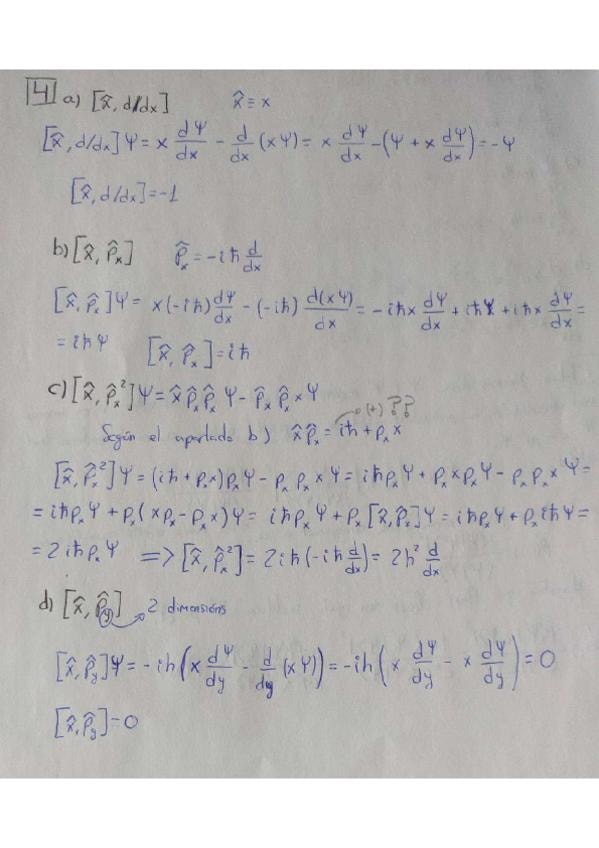 4 a) [x̂, d/dx] x̂ ≡ x
[x̂, d/dx]Ψ = x dΨ/dx - d/dx (xΨ) = x dΨ/dx - (Ψ + x dΨ/dx) = -Ψ
[x̂, d/dx] = -1
b) [x̂, p̂ₓ] p̂ₓ = -iħ d/dx
[x̂, p̂ₓ]Ψ = x(-iħ) dΨ/dx - (-iħ) d(xΨ)/dx = -iħx dΨ/dx + iħΨ + iħx dΨ/dx =
= iħΨ [x̂, p̂ₓ] = iħ
c) [x̂, p̂ₓ²]Ψ = x̂p̂ₓp̂ₓΨ - p̂ₓp̂ₓxΨ
(+) ??
Según el apartado b) x̂p̂ₓ = iħ + pₓx
[x̂, p̂ₓ²]Ψ = (iħ + pₓx)pₓΨ - pₓpₓxΨ = iħpₓΨ + pₓxpₓΨ - pₓpₓxΨ =
= iħpₓΨ + pₓ(xpₓ - pₓx)Ψ = iħpₓΨ + pₓ[x̂, p̂ₓ]Ψ = iħpₓΨ + pₓiħΨ =
= 2iħpₓΨ => [x̂, p̂ₓ²] = 2iħ(-iħ d/dx) = 2ħ² d/dx
d) [x̂, p̂y] 2 dimensións
[x̂, p̂y]Ψ = -iħ(x dΨ/dy - d/dy (xΨ)) = -iħ(x dΨ/dy - x dΨ/dy) = 0
[x̂, p̂y] = 0